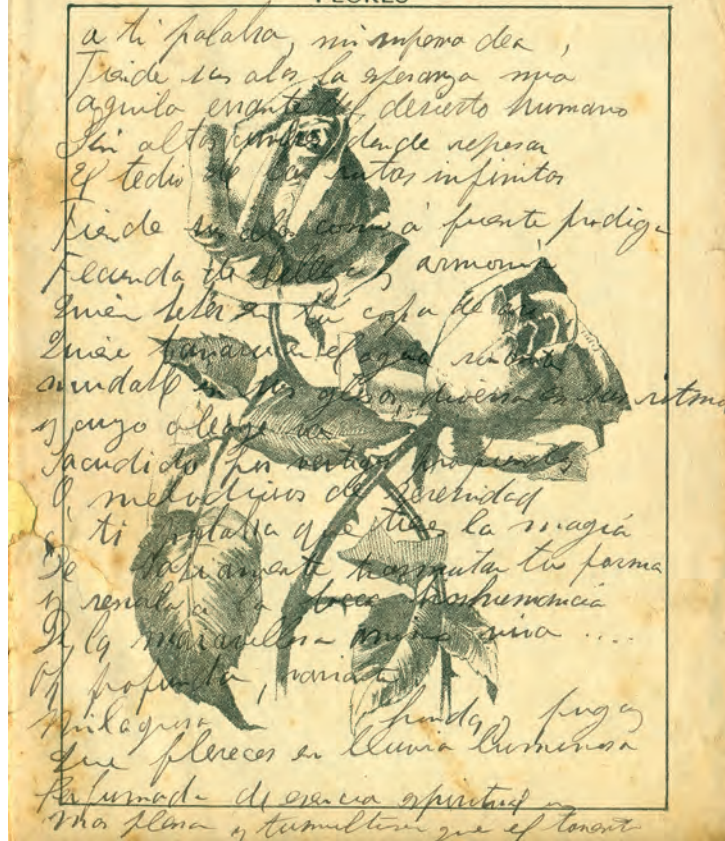 FLORES
a ti palabra, mi suprema dea,
Tiende sus alas la esperanza mia
aguila errante del desierto humano
Sin altas cumbres donde reposar
El tedio de las rutas infinitas
Tiende sus alas como á fuente prodiga
Fecunda de belleza y armonia
Quien beber en tú copa de
Quien en el agua
mundal en sus glosas, diversa en sus ritmos
y cuyo oleage va
Sacudido por vertigos profundos
O, melodiosos de serenidad
a ti palabra que tienes la magia
De sabiamente trasmutar tu forma
y a la
De la maravillosa anima viva ....
Oh profunda, variante
milagrosa honda, y fugaz
que floreces en lluvia luminosa
Perfumada de esencia espiritual y
mas plena y tumultuosa que el torrente